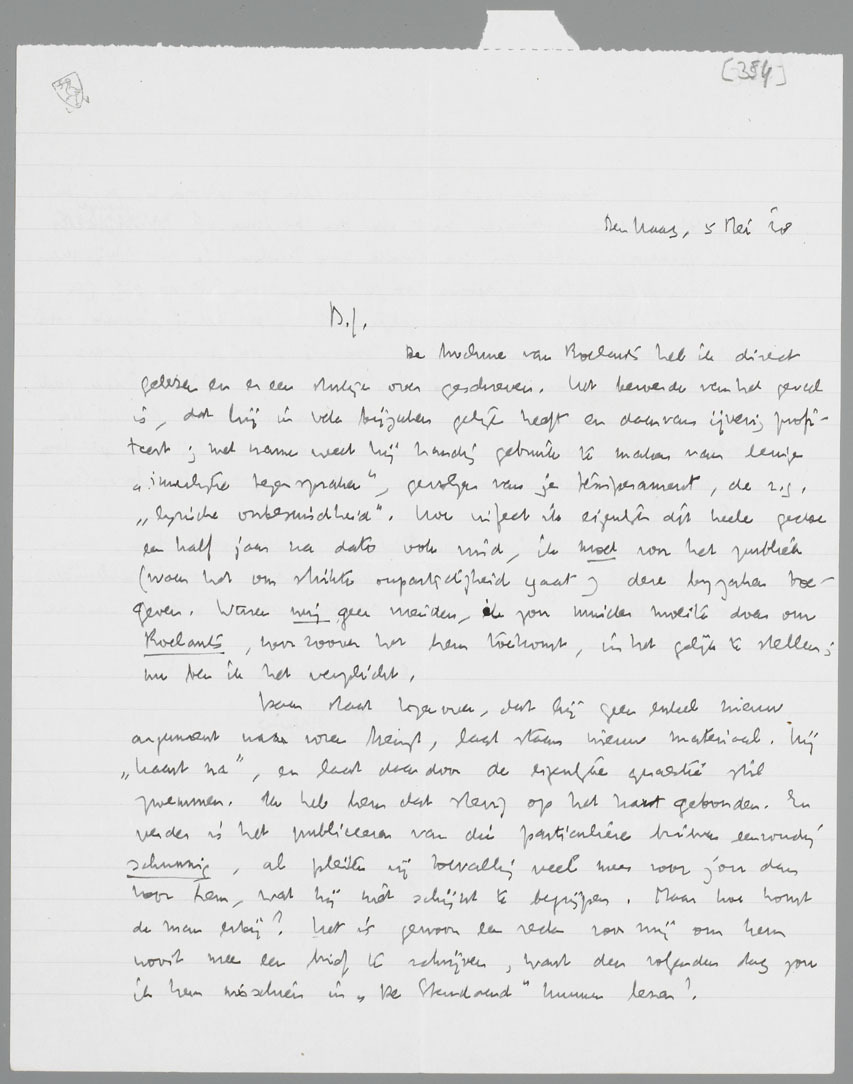 [354]
Den Haag, 5 Mei '38
B.J.
De brochure van Roelants heb ik direct
gelezen en er een stukje over geschreven. Het beroerde van het geval
is, dat hij in vele bijzaken gelijk heeft en daarvan ijverig profi-
teert; met name weet hij handig gebruik te maken van eenige
„innerlijke tegenspraken”, gevolgen van je temperament, de z.g.
„lyrische onbesuisdheid”. Hoe infect ik eigenlijk dit heele gedoe
een half jaar na dato ook vind, ik moet voor het publiek
(waar het om strikte onpartijdigheid gaat) deze bijzaken toe-
geven. Waren wij geen vrienden, ik zou minder moeite doen om
Roelants, voor zoover het hem toekomt, in het gelijk te stellen;
nu ben ik het verplicht.
Daar staat tegenover, dat hij geen enkel nieuw
argument naar voren brengt, laat staan nieuw materiaal. Hij
„kaart na”, en laat daardoor de eigenlijke quaestie stil
zwemmen. Ik heb hem dat stevig op het hart gebonden. En
verder is het publiceeren van die particuliere brieven eenvoudig
schunnig, al pleiten zij toevallig veel meer voor jou dan
voor hem, wat hij niet schijnt te begrijpen. Maar hoe komt
de man erbij? Het is gewoon een reden voor mij om hem
nooit meer een brief te schrijven, want den volgenden dag zou
ik hem misschien in „De Standaard” kunnen lezen!